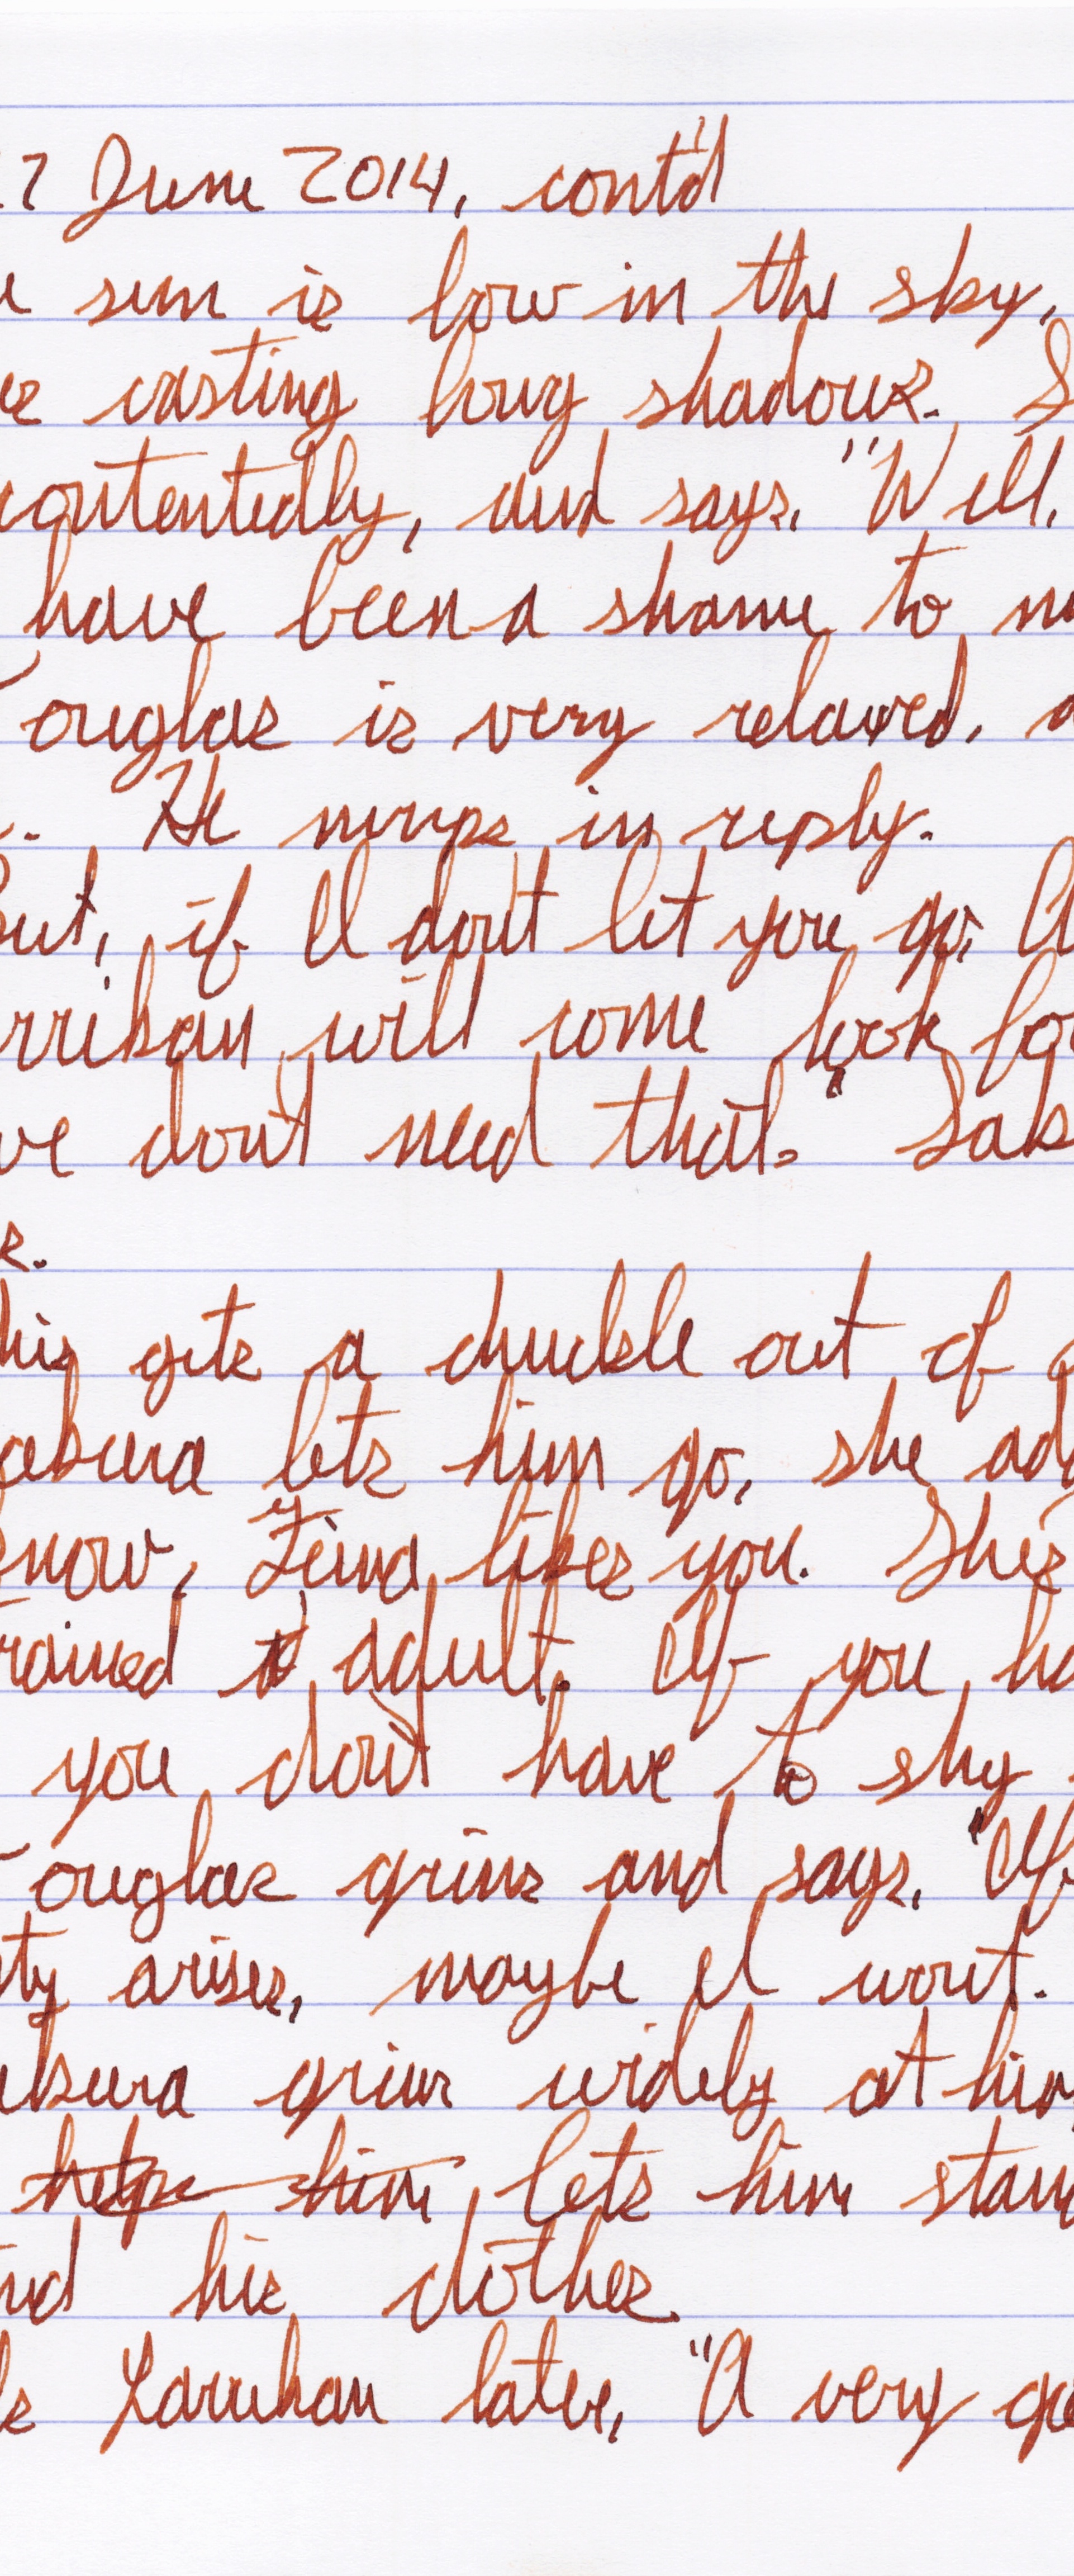 27 June 2014, cont'd
sun is low in the sky,
casting long shadows. S
contentedly, and says, "Well,
have been a shame to
Touglas is very relaxed,
He mrrps in reply.
But, if I don't let you go, A
rrikan will come look for
we don't need that." Sak
s.
his gets a chuckle out of
akura lets him go, she add
know, Fiwa likes you. She's
trained adult. If you ha
you don't have to shy
Touglas grins and says, "If
ty arises, maybe I won't.
akura grins widely at him
helps him lets him stand
nd his clothes.
ls Larrikan later, "A very go